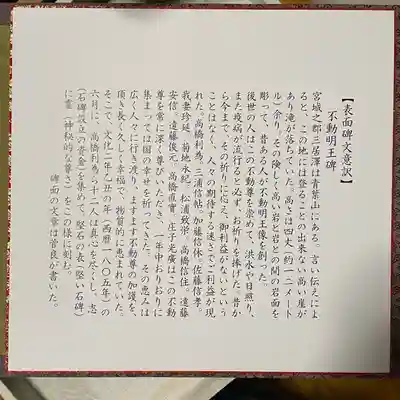 【表面碑文意訳】
不動明王碑
宮城之郡三居澤は青葉山にある。言い伝えによ
ると、この地には登ることの出来ない高い崖が
あり滝が落ちていた。高さは四丈（約一二メート
ル）余り。その険しく高い岩と岩との間の岩面を
彫って、昔ある人が不動明王像を創った。
後世の人はこの不動尊を崇めて、洪水や日照り、
また疫病が流行すると必ずお祈りを捧げた。昔か
ら今まで、その祈りに応えて、御利益がないという
ことはなく、人々の期待する速さでご利益が現
れた。高橋利為、三浦信帖、加藤信休、佐藤信孝、
我妻珍延、菊地永紀、松浦致崇、高橋信住、遠藤
安信、遠藤俊元、高橋直實、庄子光廣はこの不動
尊を常に深く尊びいただき、一年中おりおりに
集まっては国の幸せを祈っていた。その恵みは
広く人々に行き渡り、ますます不動尊の加護を
頂き長く久しく幸福で、物質的に恵まれていた。
そこで、文化二年乙丑の年（西暦一八〇五年）の
六月に、高橋利為ら十二人は真心を尽くし、志
（石碑設立の資金）を集めて、堅石の表（堅い石碑）
に霊（神秘的な尊さ）をこの様に刻む。
碑面の文章は菅良が書いた。